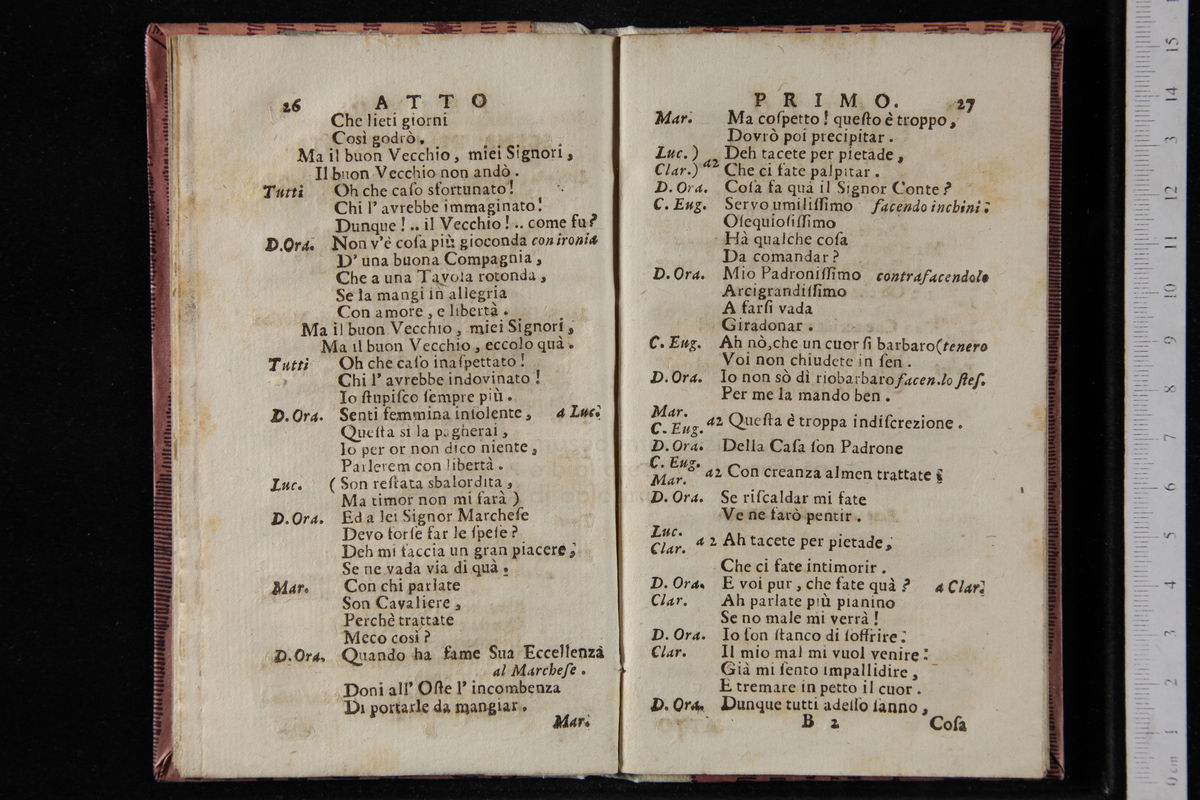 26 ATTO
Che lieti giorni
Così godrò.
Ma il buon Vecchio, miei Signori,
Il buon Vecchio non andò.
Tutti Oh che caſo sfortunato!
Chi l' avrebbe immaginato!
Dunque!.. il Vecchio!.. come fu?
D.Ora. Non v'è coſa più gioconda con ironia
D' una buona Compagnia,
Che a una Tavola rotonda,
Se la mangi in allegria
Con amore, e libertà.
Ma il buon Vecchio, miei Signori,
Ma il buon Vecchio, eccolo quà.
Tutti Oh che caſo inaſpettato!
Chi l' avrebbe indovinato!
Io ſtupiſco ſempre più.
D.Ora. Senti femmina inſolente, a Luc.
Queſta si la pagherai,
Io per or non dico niente,
Parlerem con libertà.
Luc. (Son reſtata sbalordita,
Ma timor non mi farà)
D.Ora. Ed a lei Signor Marcheſe
Devo forſe far le ſpeſe?
Deh mi faccia un gran piacere,
Se ne vada via di quà.
Mar. Con chi parlate
Son Cavaliere,
Perchè trattate
Meco così?
D.Ora. Quando ha fame Sua Eccellenza
al Marcheſe.
Doni all' Oſte l' incombenza
Di portarle da mangiar.
Mar.
PRIMO. 27
Mar. Ma coſpetto! queſto è troppo,
Dovrò poi precipitar.
Luc.) a2 Deh tacete per pietade,
Clar.) Che ci fate palpitar.
D. Ora. Coſa fa quà il Signor Conte?
C. Eug. Servo umiliſſimo facendo inchini.
Oſequioſiſſimo
Hà qualche coſa
Da comandar?
D. Ora. Mio Padroniſſimo contrafacendolo
Arcigrandiſſimo
A farſi vada
Giradonar.
C. Eug. Ah nò, che un cuor ſi barbaro (tenero
Voi non chiudete in ſen.
D. Ora. Io non sò dì riobarbaro facen.lo ſteſ.
Per me la mando ben.
Mar.
C. Eug. a2 Queſta è troppa indiſcrezione.
D. Ora. Della Caſa ſon Padrone
C. Eug.
Mar. a2 Con creanza almen trattate
D. Ora. Se riſcaldar mi fate
Ve ne farò pentir.
Luc.
Clar. a 2 Ah tacete per pietade,
Che ci fate intimorir.
D. Ora. E voi pur, che fate quà? a Clar.
Clar. Ah parlate più pianino
Se no male mi verrà!
D. Ora. Io ſon ſtanco di ſoffrire.
Clar. Il mio mal mi vuol venire:
Già mi ſento impallidire,
E tremare in petto il cuor.
D. Ora. Dunque tutti adeſſo ſanno,
B 2 Coſa